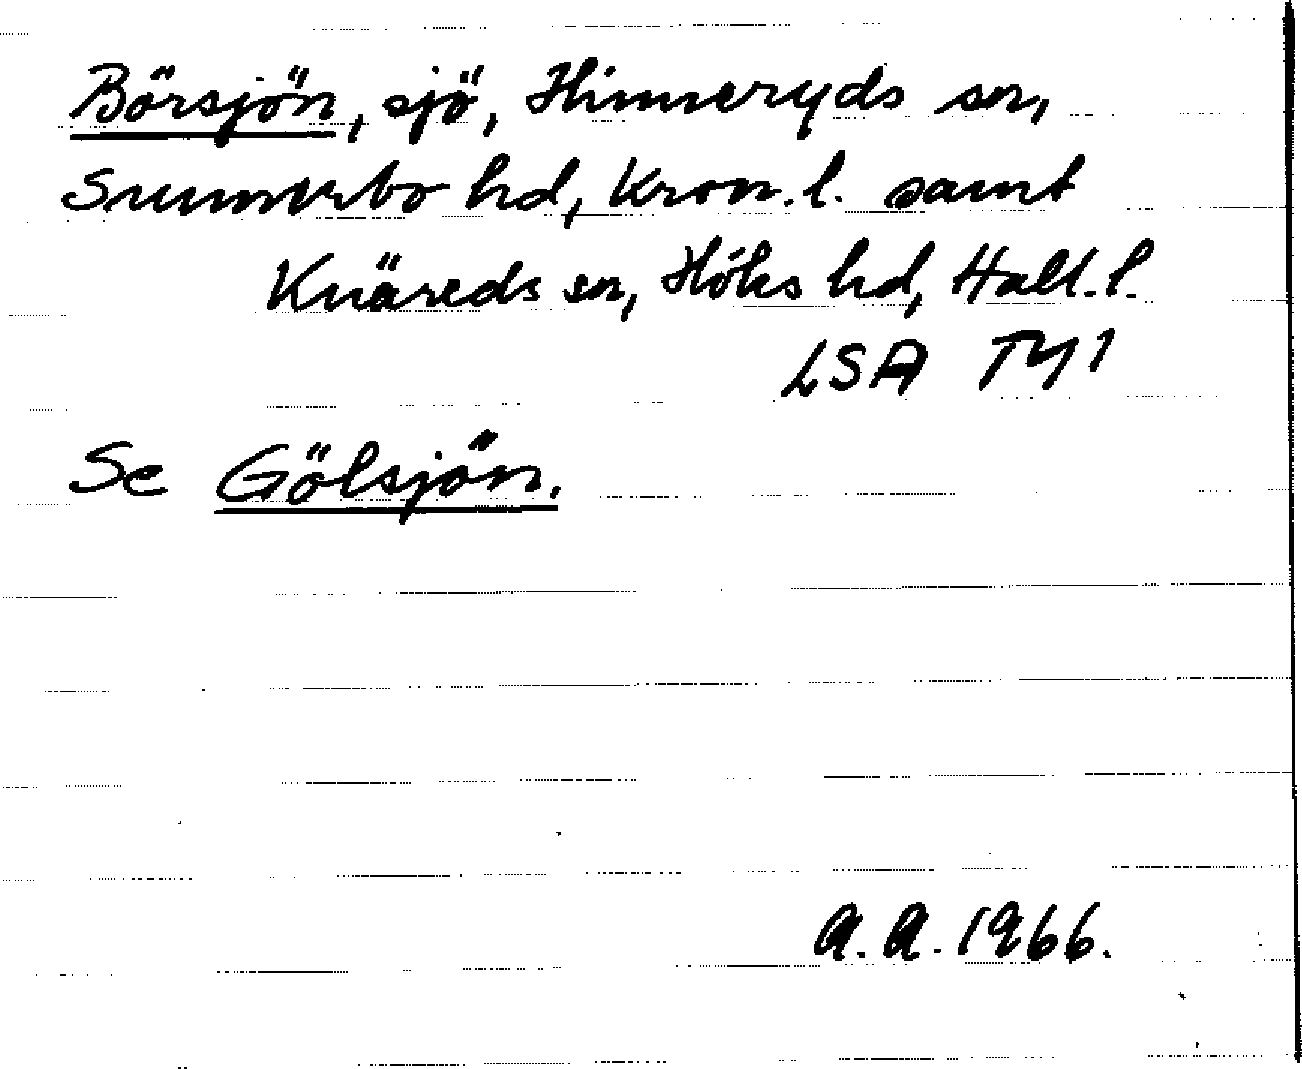 Börsjön, sjö, Hinneryds sn,
Sunnerbo hd, Kron. l. samt
Knäreds sn, Höks hd, Hall. l.
LSA TY1
Se Gölsjön.
A. A. 1966.